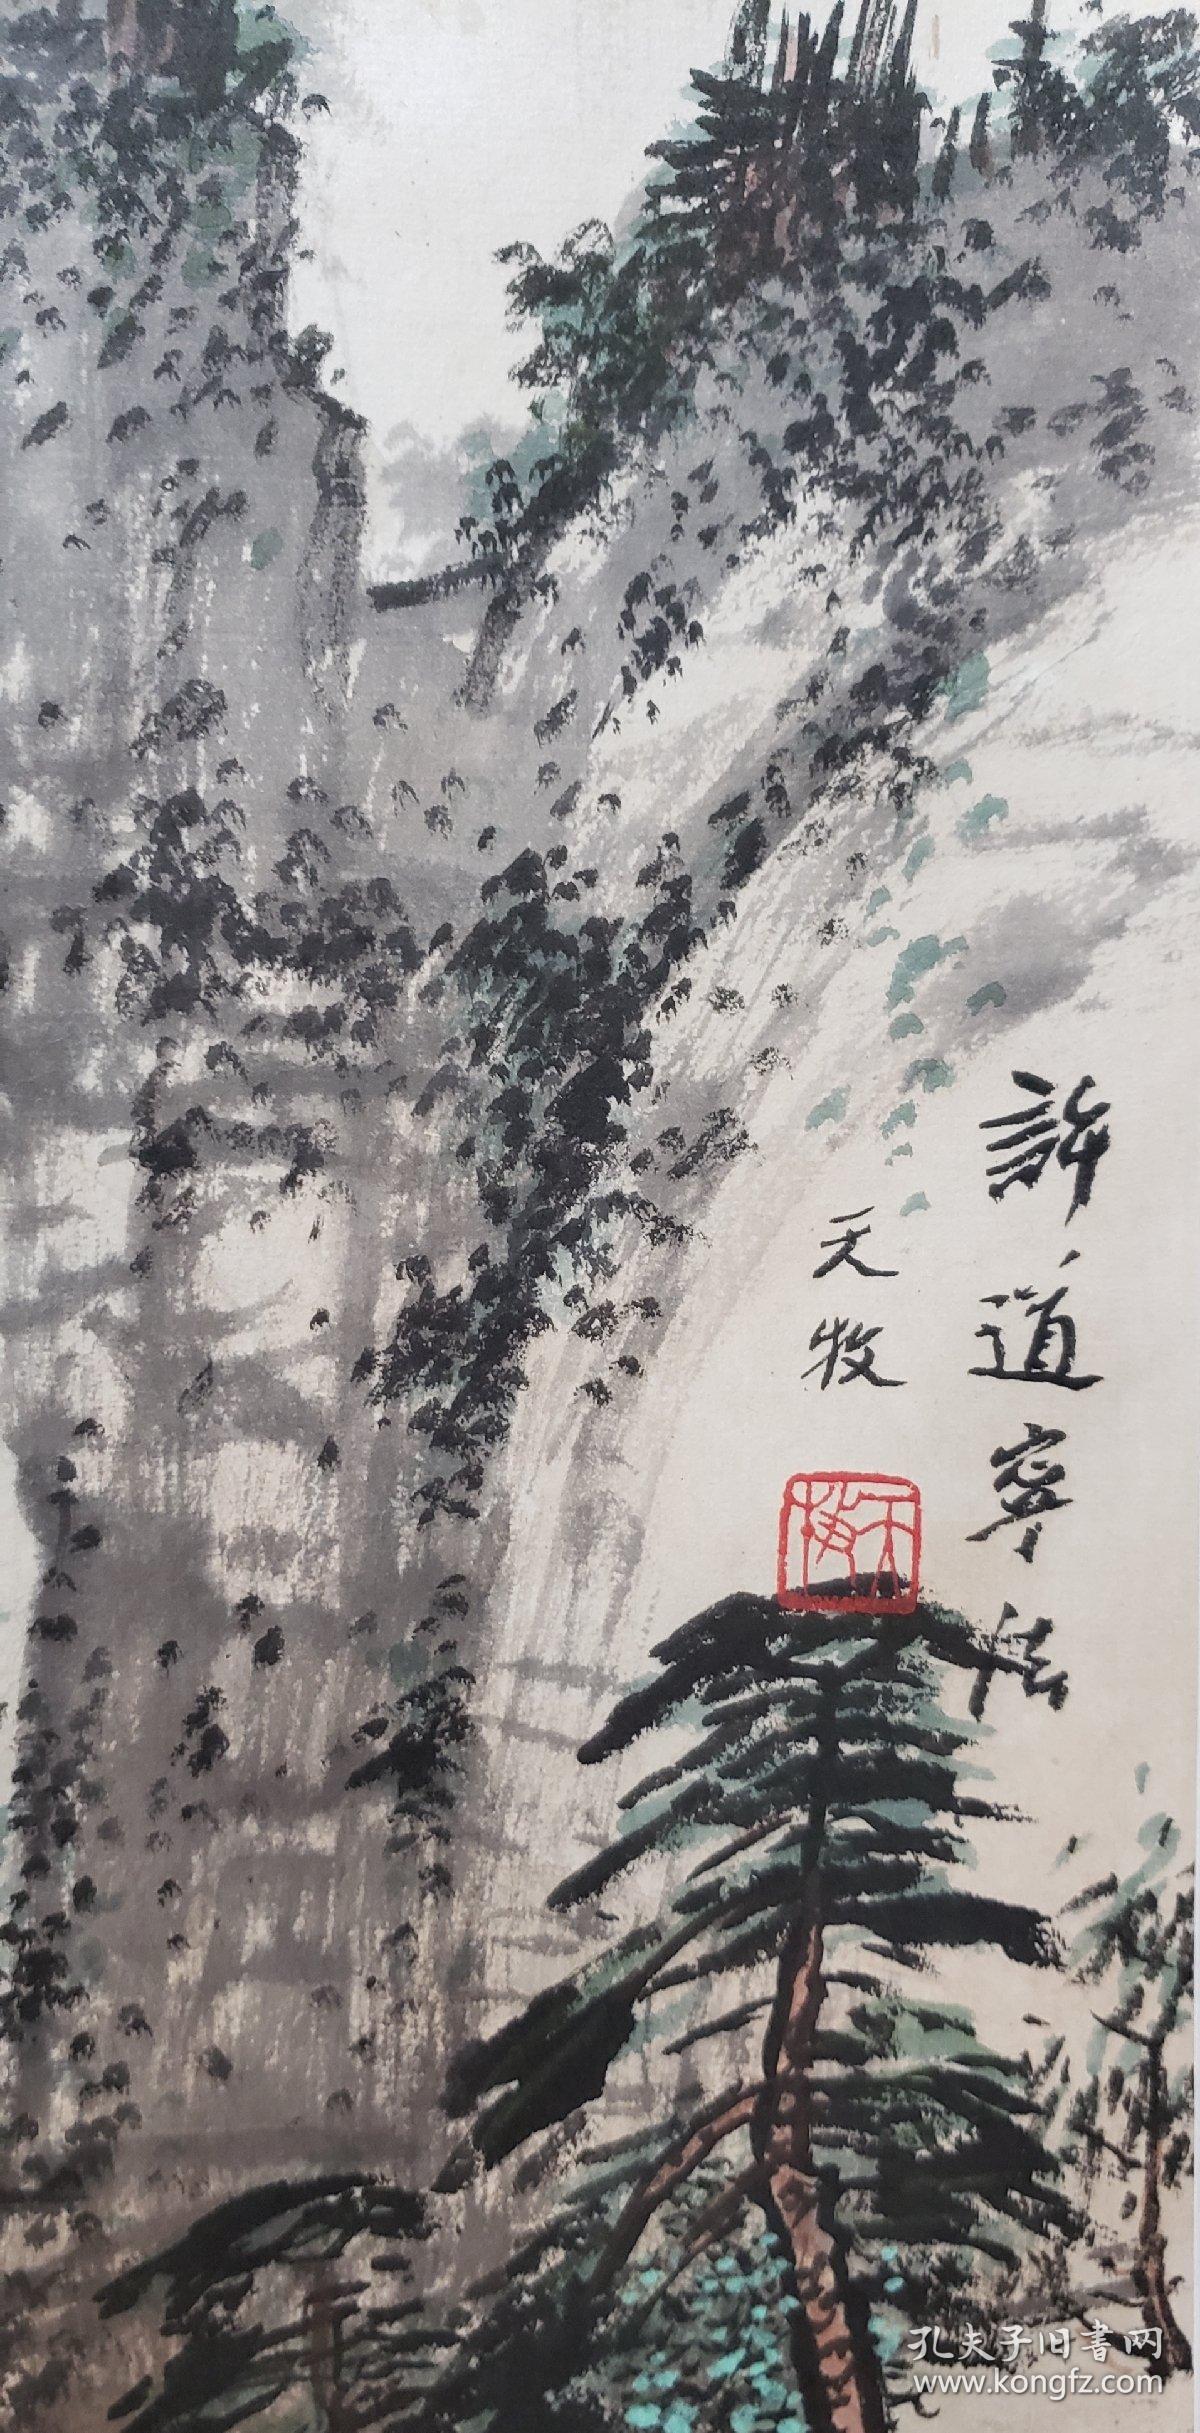 許道寧法
天牧
天牧
孔夫子旧書网
www.kongfz.com